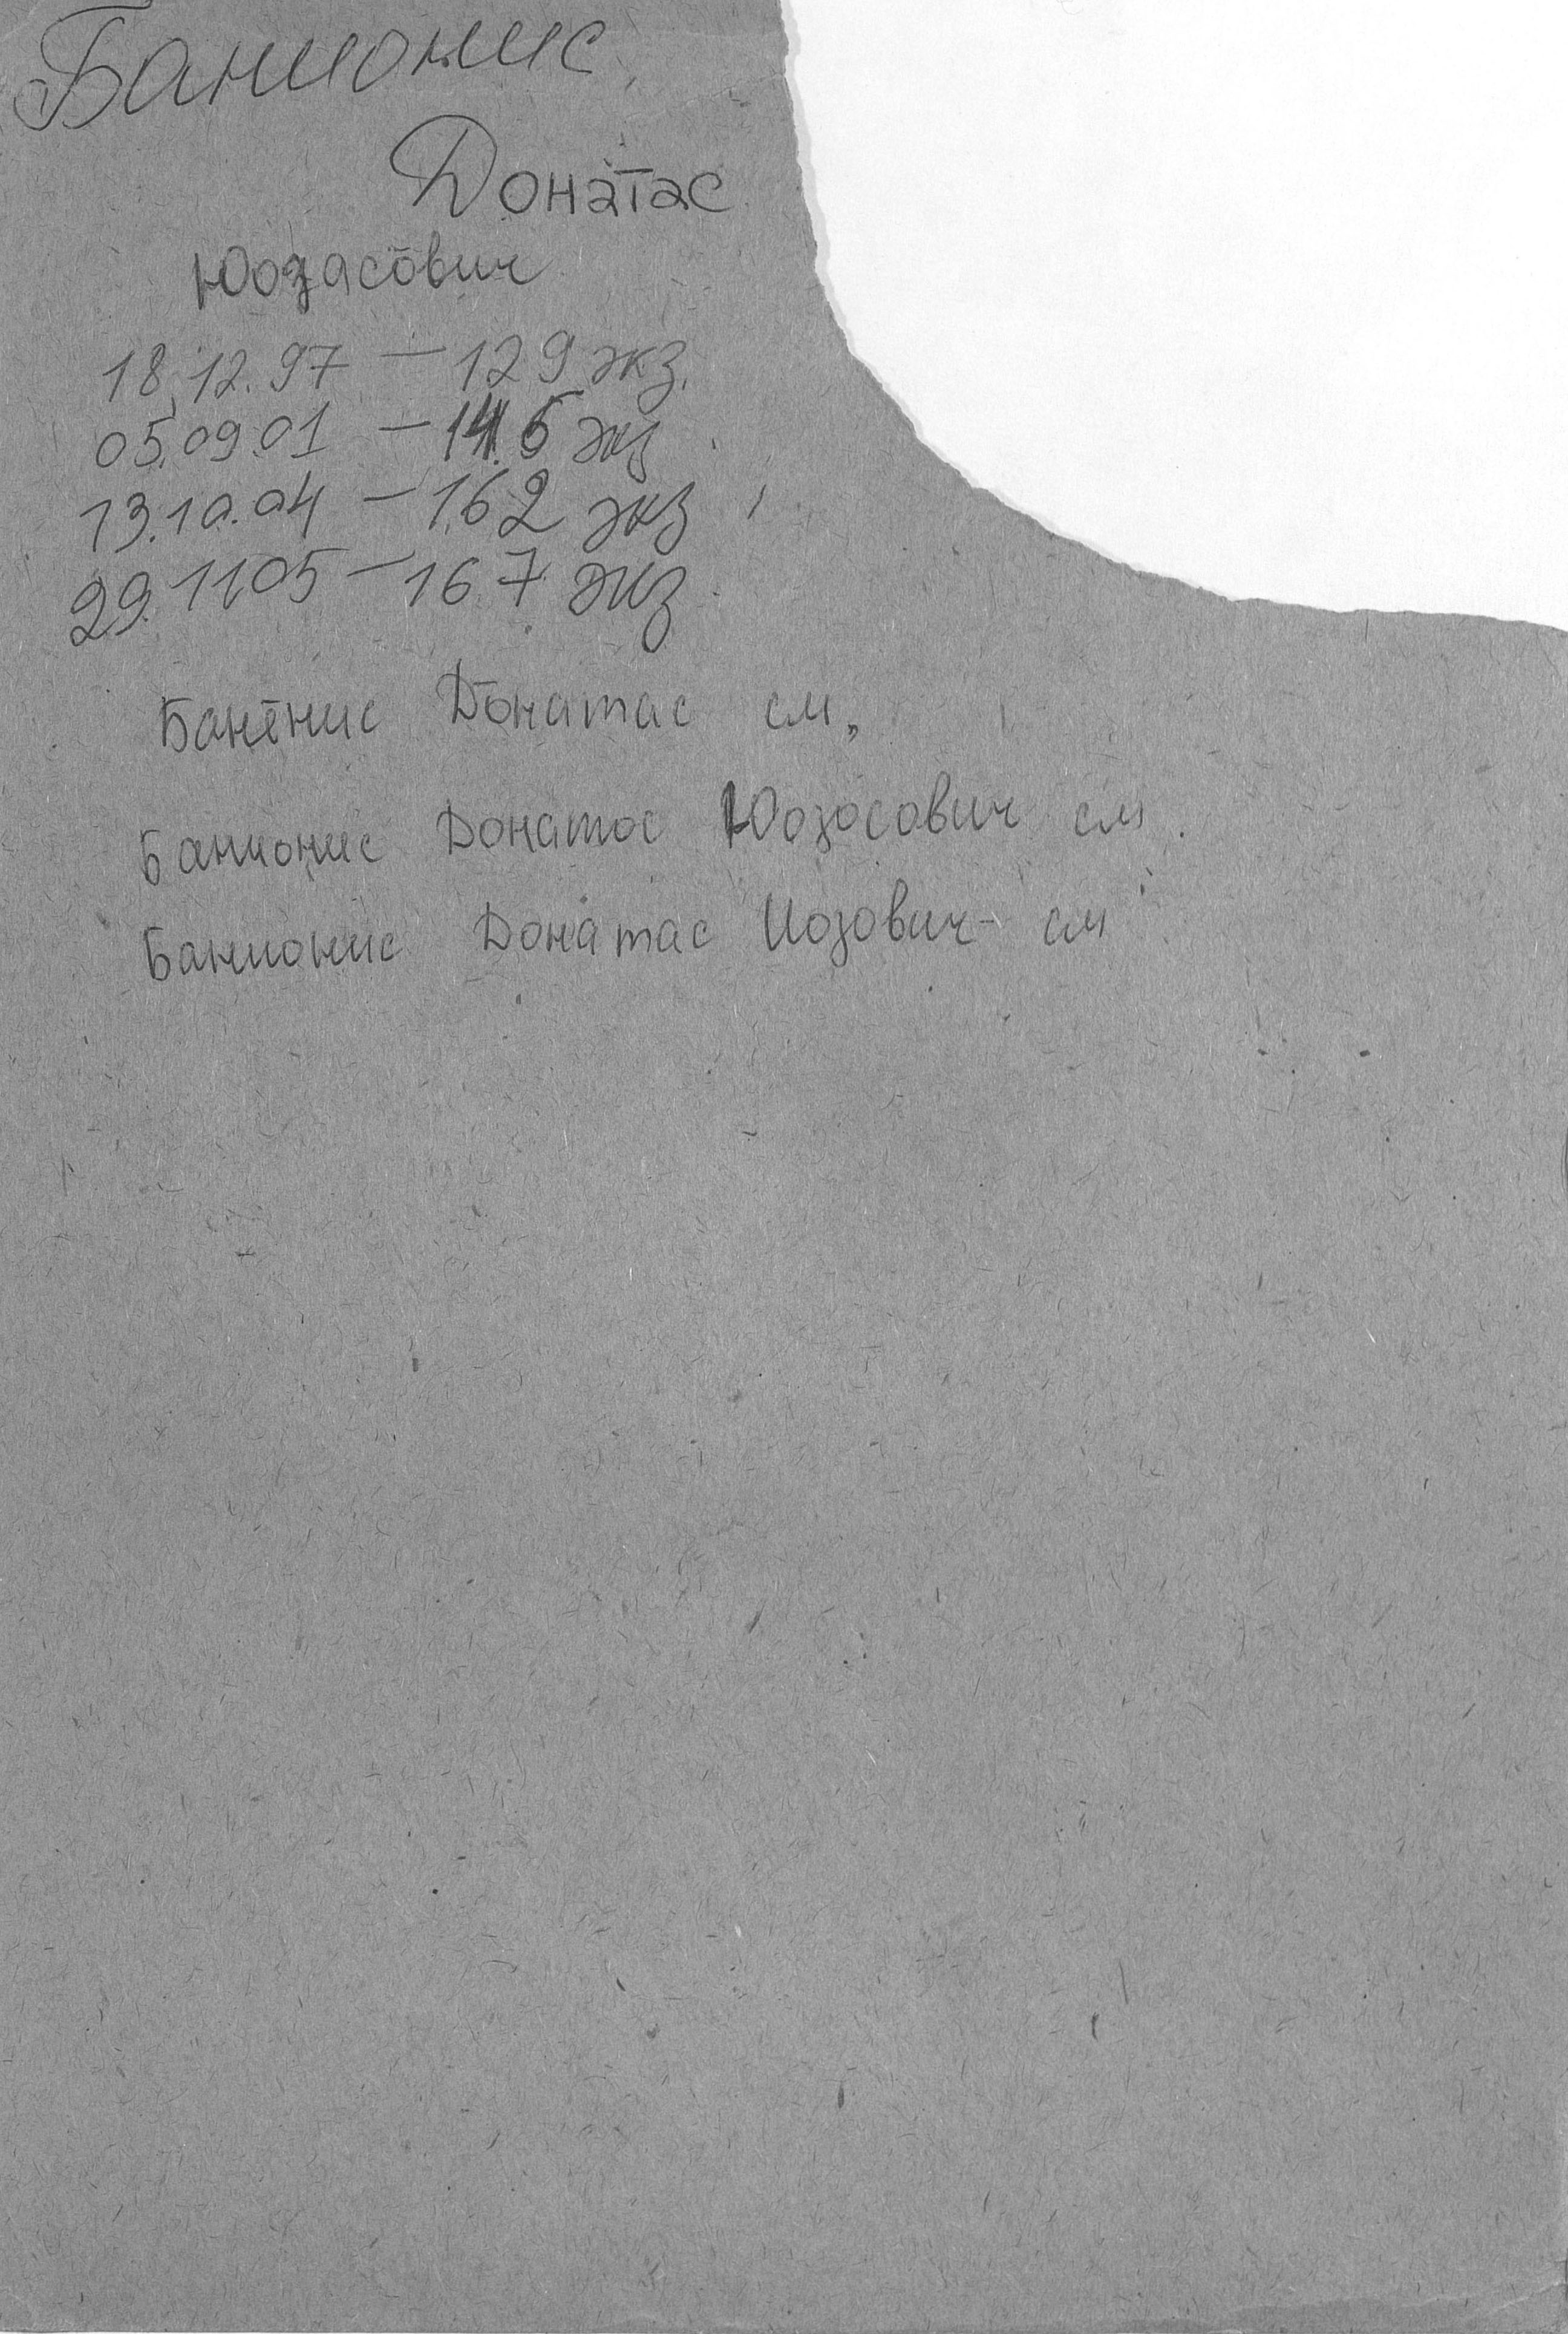 Банионис
Донатас
Юозасович
18.12.97 — 129 экз.
05.09.01 — 146 экз
13.10.04 — 162 экз
29.11.05 — 167 экз.
Банёнис Донатас см.
Банионис Донатос Юозосович см.
Банионис Донатас Иозович - см